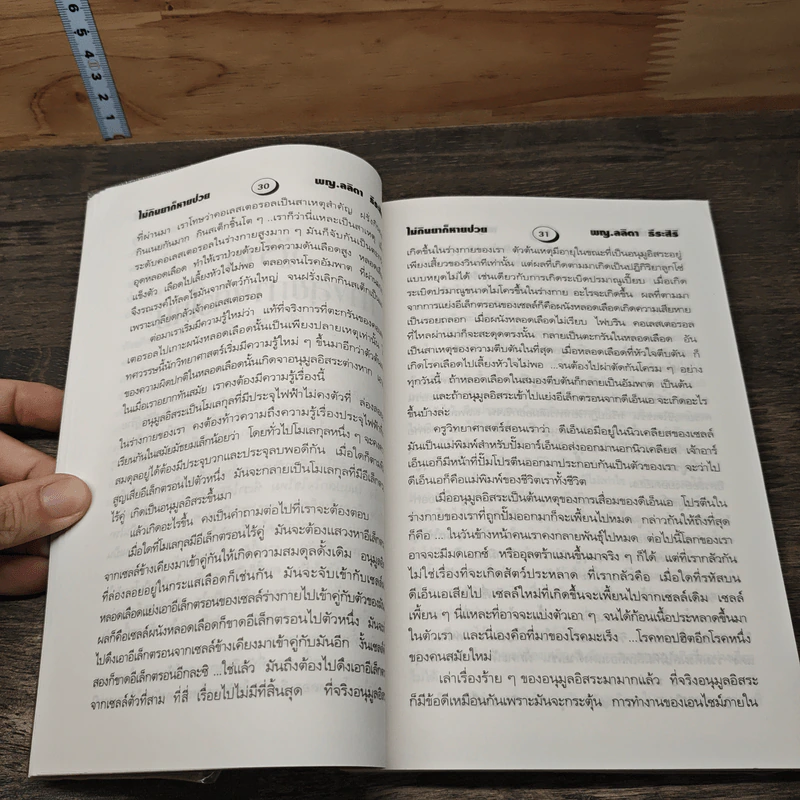 6 5 4 3 2 1
ไม่กินยาก็หายป่วย 30 พญ.ลลิตา ธีระสิริ
ที่ผ่านมา เราโทษว่าคอเลสเตอรอลเป็นสาเหตุสำคัญ ฝรั่งกิน
กินเนยกันมาก กินสเต๊กชิ้นโต ๆ ...เราก็ว่านี่แหละเป็นสาเหตุ
ระดับคอเลสเตอรอลในร่างกายสูงมาก ๆ มันก็จับกันเป็นตะกรัน
อุดหลอดเลือด ทำให้เราป่วยด้วยโรคความดันเลือดสูง หลอดเลือด
แข็งตัว เลือดไปเลี้ยงหัวใจไม่พอ ตลอดจนโรคอัมพาต ที่ผ่านมา
จึงรณรงค์ให้ลดไขมันจากสัตว์กันใหญ่ จนฝรั่งเลิกกินสเต๊กเป็น
เพราะเกลียดกลัวเจ้าคอเลสเตอรอล
ต่อมาเราเริ่มมีความรู้ใหม่ว่า แท้ที่จริงการที่ตะกรันของคอเลส
เตอรอลไปเกาะผนังหลอดเลือดนั้นเป็นเพียงปลายเหตุเท่านั้น
ทศวรรษนี้นักวิทยาศาสตร์เริ่มมีความรู้ใหม่ ๆ ขึ้นมาอีกว่าตัวต้น
ของความผิดปกติในหลอดเลือดนั้นเกิดจากอนุมูลอิสระต่างหาก
ในเมื่อเราอยากทันสมัย เราคงต้องมีความรู้เรื่องนี้
อนุมูลอิสระเป็นโมเลกุลที่มีประจุไฟฟ้าไม่คงตัวที่ ล่องลอย
ในร่างกายของเรา คงต้องท้าวความถึงความรู้เรื่องประจุไฟฟ้า
เรียนกันในสมัยมัธยมเล็กน้อยว่า โดยทั่วไปโมเลกุลหนึ่ง ๆ จะคง
สมดุลอยู่ได้ต้องมีประจุบวกและประจุลบพอดีกัน เมื่อใดก็ตามที่
สูญเสียอีเล็กตรอนไปตัวหนึ่ง มันจะกลายเป็นโมเลกุลที่มีอีเล็กตรอน
ไร้คู่ เกิดเป็นอนุมูลอิสระขึ้นมา
แล้วเกิดอะไรขึ้น คงเป็นคำถามต่อไปที่เราจะต้องตอบ
เมื่อใดที่โมเลกุลมีอีเล็กตรอนไร้คู่ มันจะต้องแสวงหาอีเล็กตรอน
จากเซลล์ข้างเคียงมาเข้าคู่กันให้เกิดความสมดุลดั้งเดิม อนุมูลอิสระ
ที่ล่องลอยอยู่ในกระแสเลือดก็เช่นกัน มันจะจับเข้ากับเซลล์
หลอดเลือดแย่งเอาอีเล็กตรอนของเซลล์ร่างกายไปเข้าคู่กับตัวของมัน
ผลก็คือเซลล์ผนังหลอดเลือดก็ขาดอีเล็กตรอนไปตัวหนึ่ง มันจะ
ไปดึงเอาอีเล็กตรอนจากเซลล์ข้างเคียงมาเข้าคู่กับมันอีก งั้นเซลล์
สองก็ขาดอีเล็กตรอนอีกละซิ ...ใช่แล้ว มันถึงต้องไปดึงเอาอีเล็กตรอน
จากเซลล์ตัวที่สาม ที่สี่ เรื่อยไปไม่มีที่สิ้นสุด ที่จริงอนุมูลอิสระ
ไม่กินยาก็หายป่วย 31 พญ.ลลิตา ธีระสิริ
เกิดขึ้นในร่างกายของเรา ตัวต้นเหตุมีอายุในขณะที่เป็นอนุมูลอิสระอยู่
เพียงเสี้ยวของวินาทีเท่านั้น แต่ผลที่เกิดตามมาเกิดเป็นปฏิกิริยาลูกโซ่
แบบหยุดไม่ได้ เช่นเดียวกับการเกิดระเบิดปรมาณูเปี๊ยบ เมื่อเกิด
ระเบิดปรมาณูขนาดไมโครขึ้นในร่างกาย อะไรจะเกิดขึ้น ผลที่ตามมา
จากการแย่งอีเล็กตรอนของเซลล์ก็คือผนังหลอดเลือดเกิดความเสียหาย
เป็นรอยถลอก เมื่อผนังหลอดเลือดไม่เรียบ ไฟบริน คอเลสเตอรอล
ที่ไหลผ่านมาก็จะสะดุดตรงนั้น กลายเป็นตะกรันในหลอดเลือด อัน
เป็นสาเหตุของความตีบตันในที่สุด เมื่อหลอดเลือดที่หัวใจตีบตัน ก็
เกิดโรคเลือดไปเลี้ยงหัวใจไม่พอ ...จนต้องไปผ่าตัดกันโครม ๆ อย่าง
ทุกวันนี้ ถ้าหลอดเลือดในสมองตีบตันก็กลายเป็นอัมพาต เป็นต้น
และถ้าอนุมูลอิสระเข้าไปแย่งอีเล็กตรอนจากดีเอ็นเอจะเกิดอะไร
ขึ้นบ้างล่ะ
ครูวิทยาศาสตร์สอนเราว่า ดีเอ็นเอมีอยู่ในนิวเคลียสของเซลล์
มันเป็นแม่พิมพ์สำหรับปั๊มอาร์เอ็นเอส่งออกมานอกนิวเคลียส เจ้าอาร์
เอ็นเอก็มีหน้าที่ปั๊มโปรตีนออกมาประกอบกันเป็นตัวของเรา จะว่าไป
ดีเอ็นเอก็คือแม่พิมพ์ของชีวิตเราทั้งชีวิต
เมื่ออนุมูลอิสระเป็นต้นเหตุของการเสื่อมของดีเอ็นเอ โปรตีนใน
ร่างกายของเราที่ถูกปั๊มออกมาก็จะเพี้ยนไปหมด กล่าวกันให้ถึงที่สุด
ก็คือ ... ในวันข้างหน้าคนเราคงกลายพันธุ์ไปหมด ต่อไปนี้โลกของเรา
อาจจะมีมดเอกซ์ หรืออุลตร้าแมนขึ้นมาจริง ๆ ก็ได้ แต่ที่เรากลัวกัน
ไม่ใช่เรื่องที่จะเกิดสัตว์ประหลาด ที่เรากลัวคือ เมื่อใดที่รหัสบน
ดีเอ็นเอเสียไป เซลล์ใหม่ที่เกิดขึ้นจะเพี้ยนไปจากเซลล์เดิม เซลล์
เพี้ยน ๆ นี่แหละที่อาจจะแบ่งตัวเอา ๆ จนได้ก้อนเนื้อประหลาดขึ้นมา
ในตัวเรา และนี่เองคือที่มาของโรคมะเร็ง ...โรคทอปฮิตอีกโรคหนึ่ง
ของคนสมัยใหม่
เล่าเรื่องร้าย ๆ ของอนุมูลอิสระมามากแล้ว ที่จริงอนุมูลอิสระ
ก็มีข้อดีเหมือนกันเพราะมันจะกระตุ้น การทำงานของเอนไซม์ภายใน